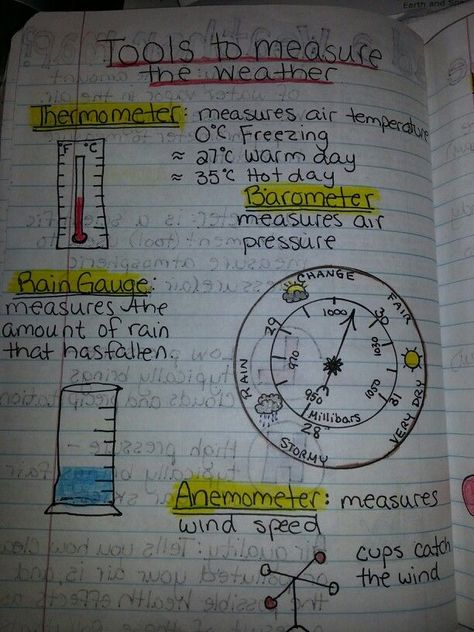 Earth and
Tools to measure
the Weather
Thermometer: measures air temperature
0°C Freezing
≈ 27°C Warm day
≈ 35°C Hot day
°F °C
Barometer
measures air
pressure
Rain Gauge:
measures the
amount of rain
that has fallen.
CHANGE
FAIR
VERY DRY
STORMY
RAIN
28
29
30
31
950
970
1000
1020
1050
Millibars
Anemometer: measures
wind speed
cups catch
the wind